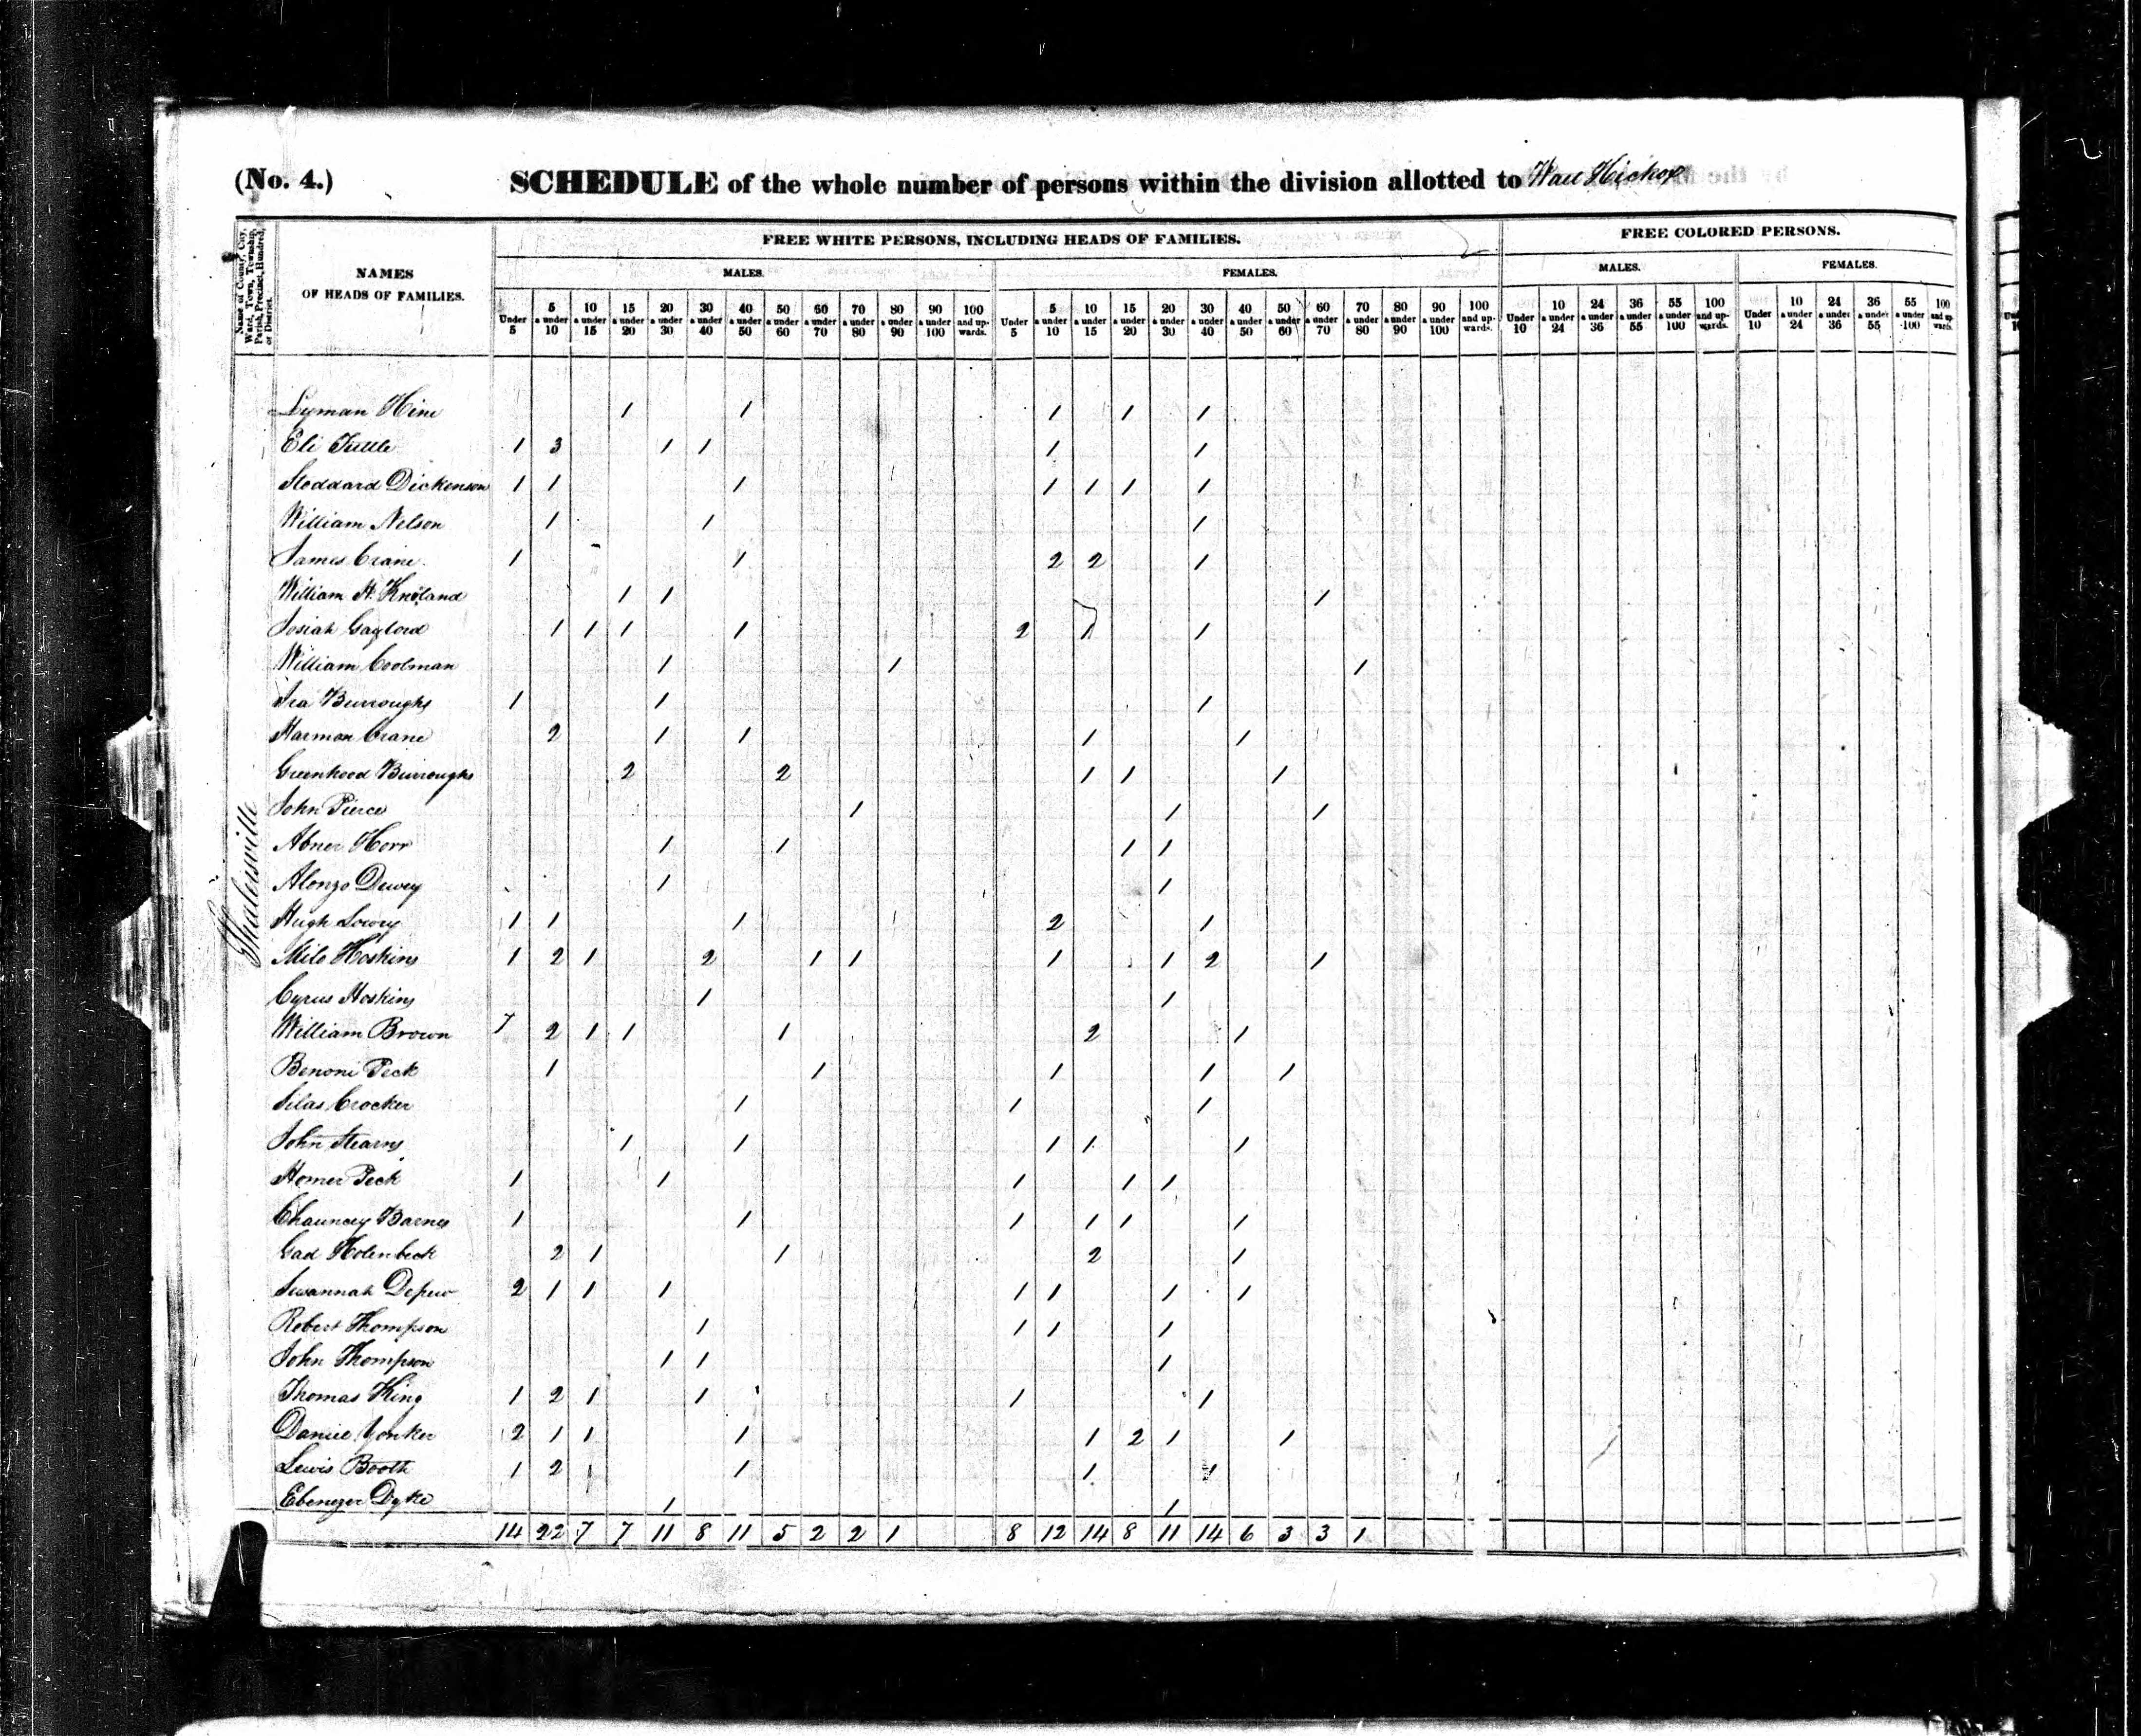 (No. 4.) SCHEDULE of the whole number of persons within the division allotted to Hickox
Name of County, City, Ward, Town, Township, Parish, Precinct, Hundred, or District.
NAMES OF HEADS OF FAMILIES.
FREE WHITE PERSONS, INCLUDING HEADS OF FAMILIES.
FREE COLORED PERSONS.
MALES. FEMALES. MALES. FEMALES.
Under 5 5 & under 10 10 & under 15 15 & under 20 20 & under 30 30 & under 40 40 & under 50 50 & under 60 60 & under 70 70 & under 80 80 & under 90 90 & under 100 100 and upwards. Under 5 5 & under 10 10 & under 15 15 & under 20 20 & under 30 30 & under 40 40 & under 50 50 & under 60 60 & under 70 70 & under 80 80 & under 90 90 & under 100 100 and upwards. Under 10 10 & under 24 24 & under 36 36 & under 55 55 & under 100 100 and upwards. Under 10 10 & under 24 24 & under 36 36 & under 55 55 & under 100 100 and upwards.
Shalersville
Lyman Hine 1 1 1 1 1
Eli Tuttle 1 3 1 1 1 1
Stoddard Dickenson 1 1 1 1 1 1 1
William Nelson 1 1 1
James Crane 1 1 2 2 1
William H. Kneland 1 1 1
Josiah Gaylord 1 1 1 1 2 1 1
William Coolman 1 1 1
Ira Burroughs 1 1 1
Harmon Crane 2 1 1 1 1
Greenhood Burroughs 2 2 1 1 1
John Pierce 1 1 1
Abner Horr 1 1 1 1
Alonzo Dewey 1 1
Hugh Lowry 1 1 1 2 1
Milo Hoskins 1 2 1 2 1 1 1 1 2 1
Cyrus Hoskins 1 1
William Brown 1 2 1 1 1 2 1
Benoni Peck 1 1 1 1 1
Silas Crocker 1 1 1
John Stearns 1 1 1 1 1
Homer Peck 1 1 1 1 1
Chauncey Barnes 1 1 1 1 1 1
Gad Holenbeck 2 1 1 2 1
Susannah Depew 2 1 1 1 1 1 1 1
Robert Thompson 1 1 1 1
John Thompson 1 1 1
Thomas King 1 2 1 1 1 1
Daniel Yonker 2 1 1 1 1 2 1 1
Lewis Booth 1 2 1 1 1 1
Ebenezer Dyke 1 1
14 22 7 7 11 8 11 5 2 2 1 8 12 14 8 11 14 6 3 3 1